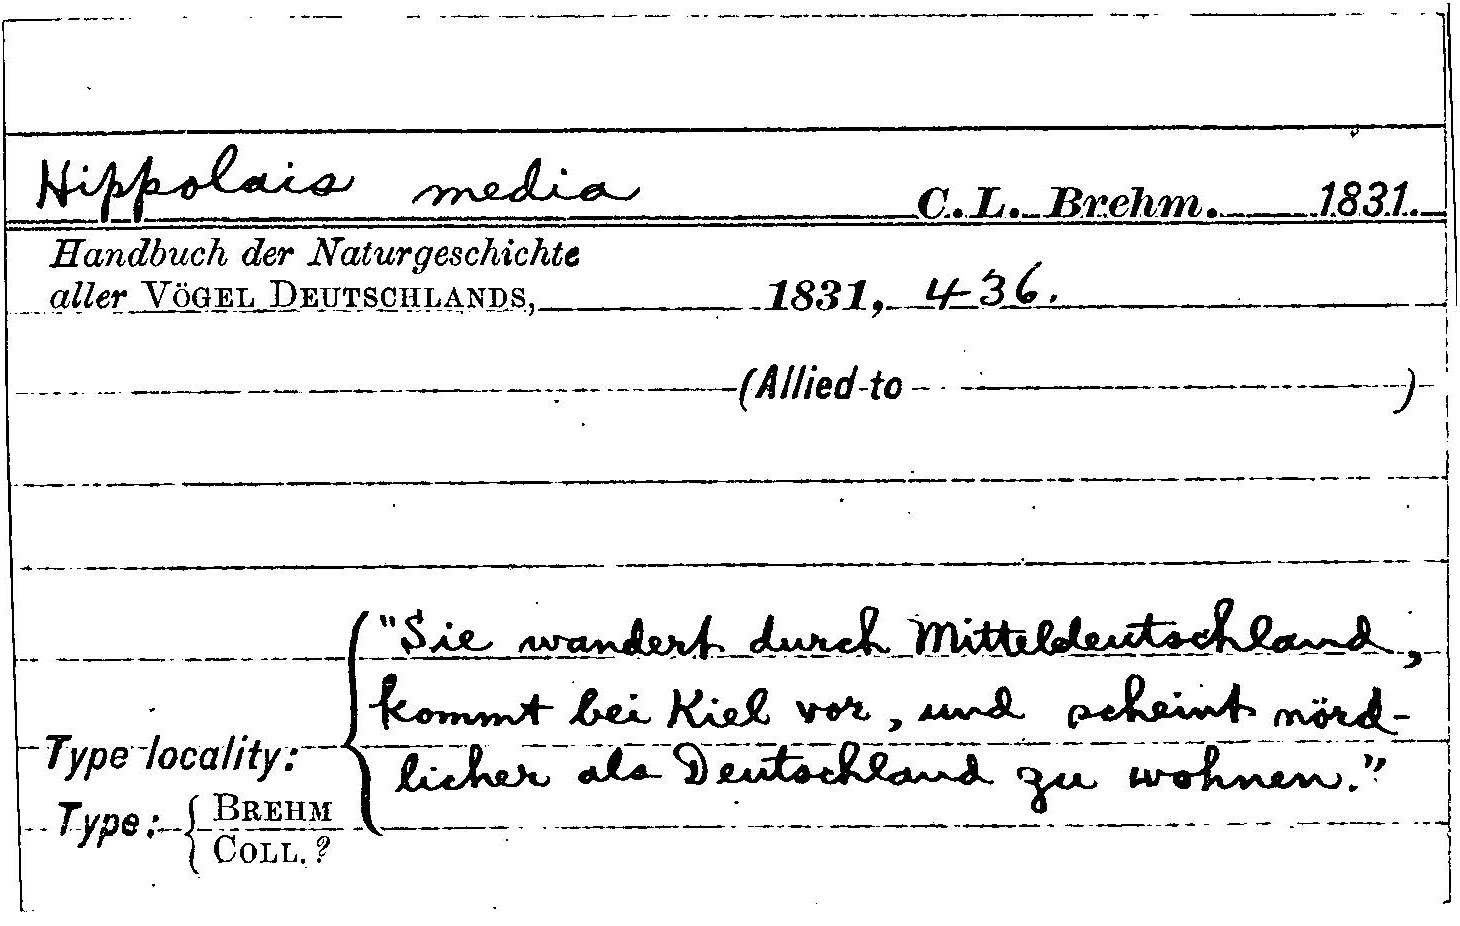 Hippolais media C. L. Brehm. 1831.
Handbuch der Naturgeschichte
aller VÖGEL DEUTSCHLANDS, 1831, 436.
(Allied to )
"Sie wandert durch Mitteldeutschland,
kommt bei Kiel vor, und scheint nörd-
licher als Deutschland zu wohnen."
Type locality:
Type: { BREHM
COLL. ?